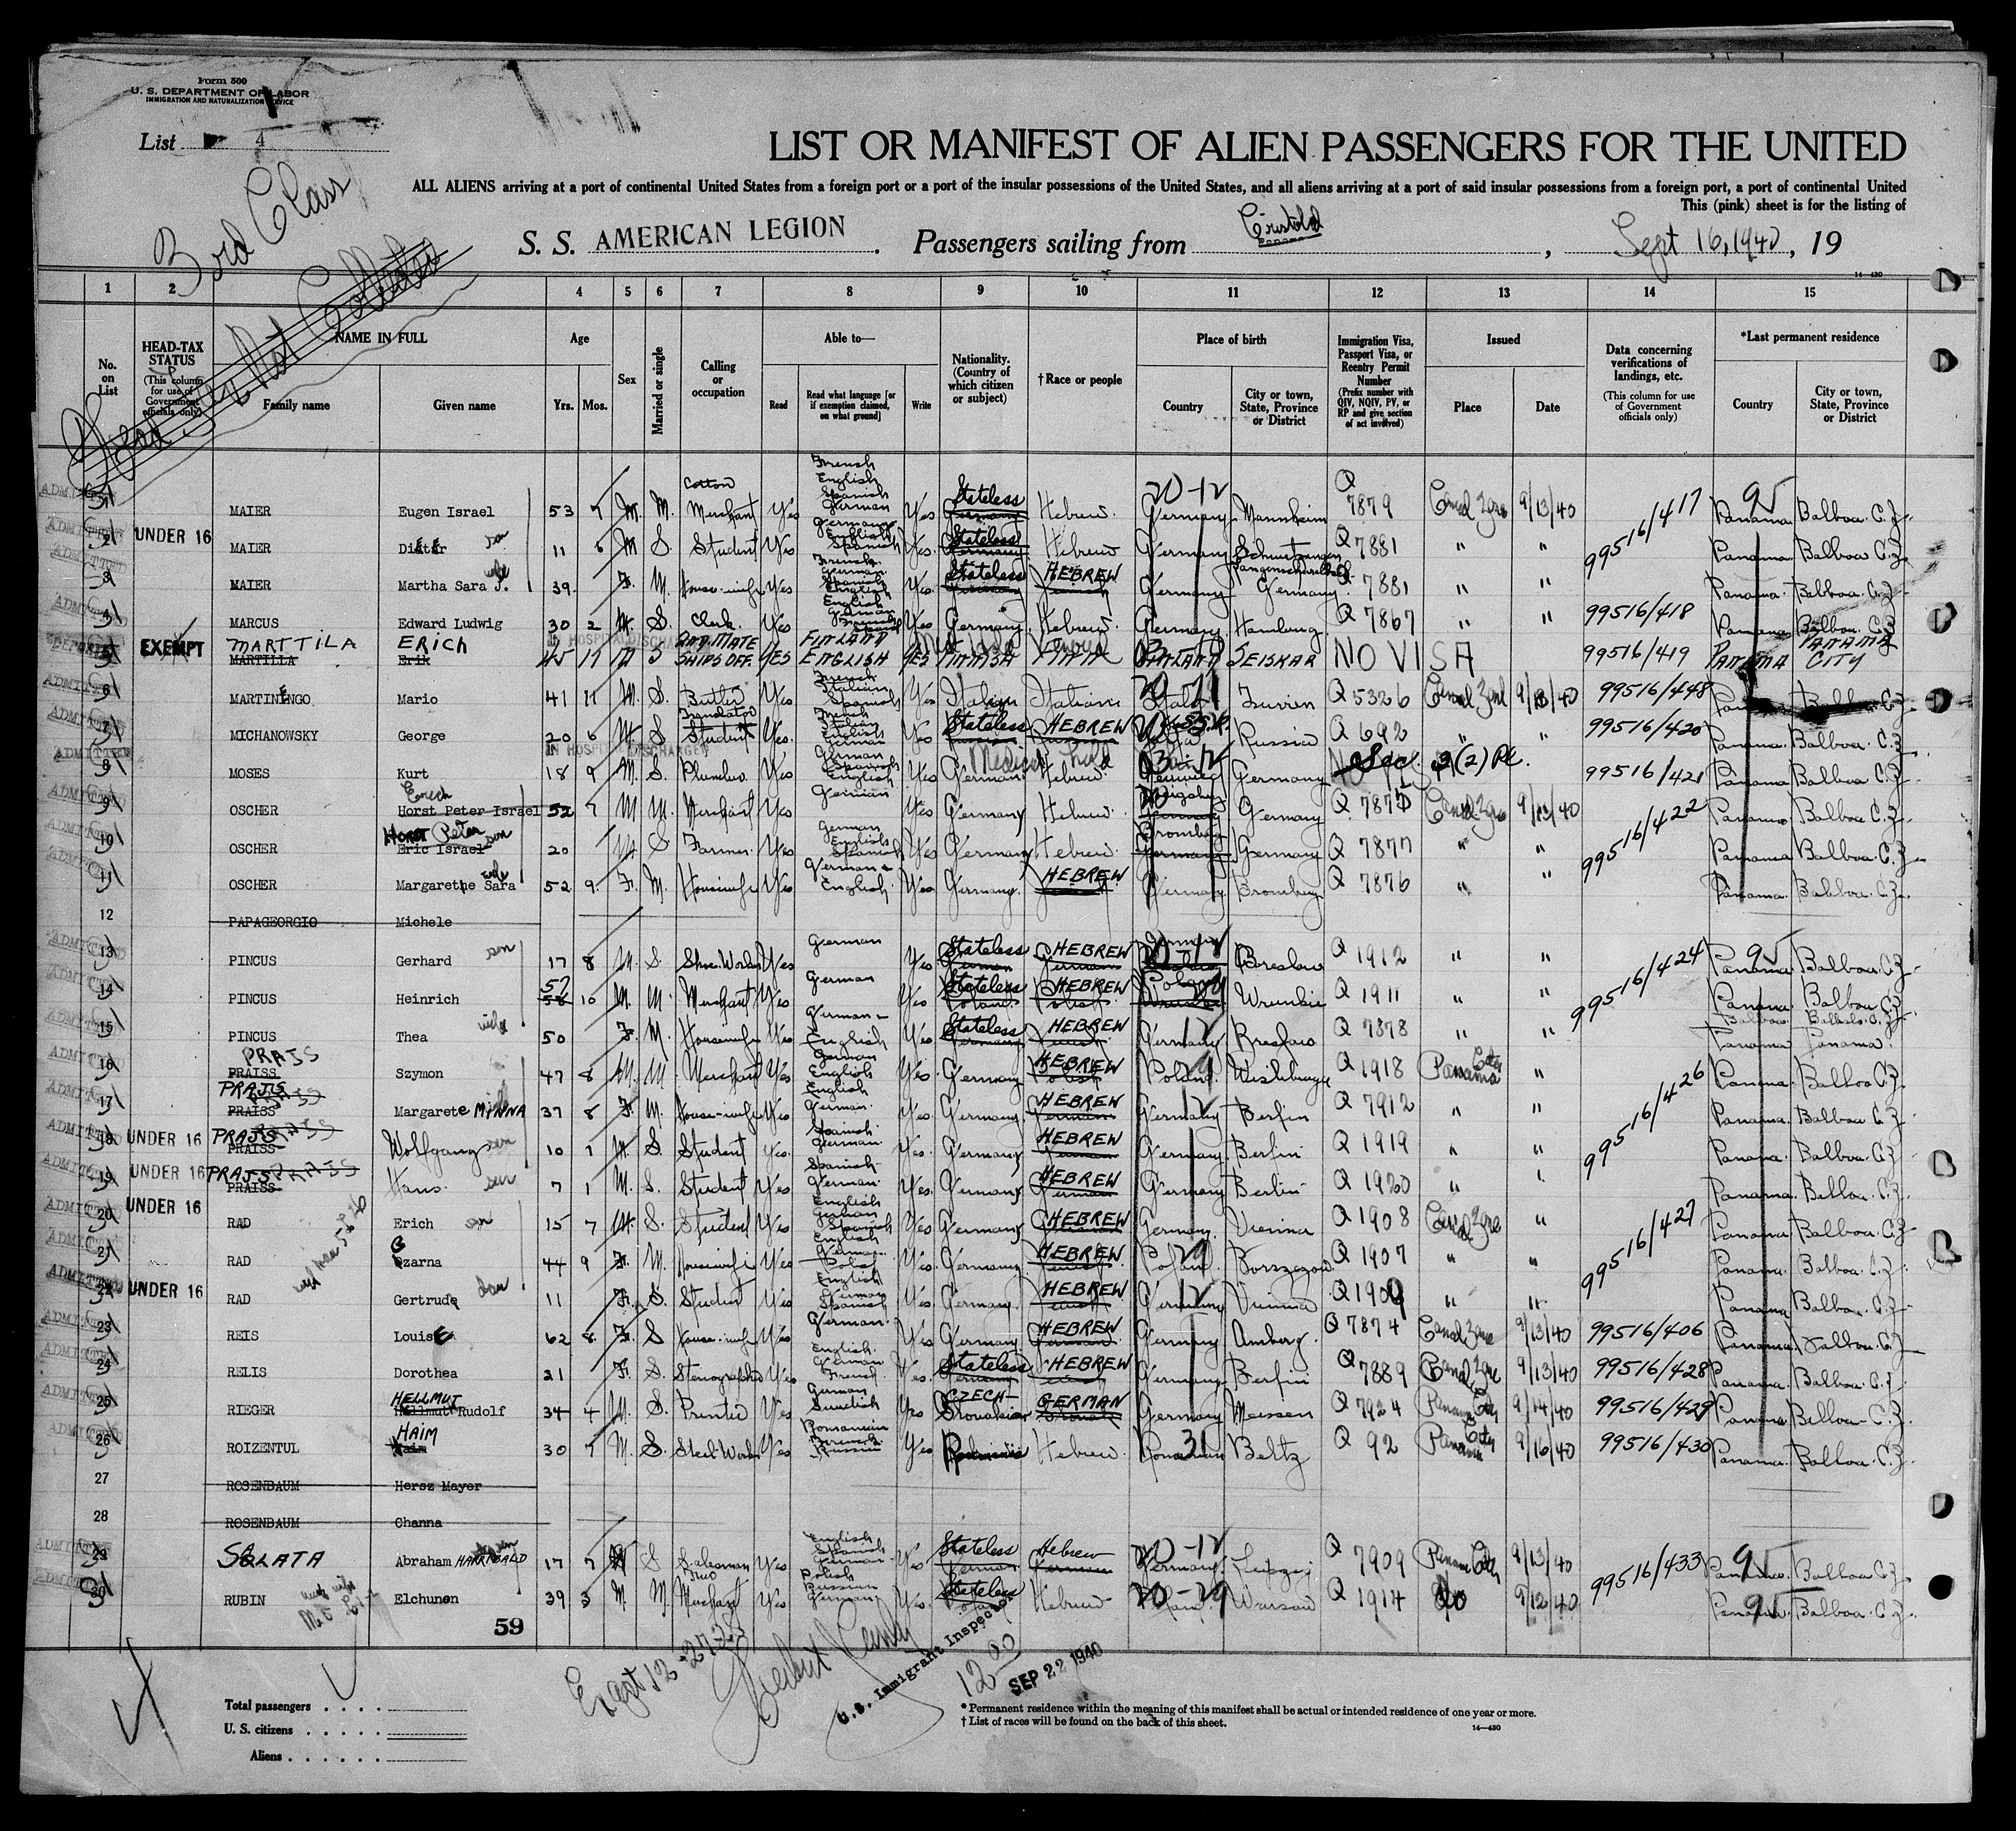 Form 500
U. S. DEPARTMENT OF LABOR
IMMIGRATION AND NATURALIZATION SERVICE
List 4
3rd Class
Head Tax Not Collected
LIST OR MANIFEST OF ALIEN PASSENGERS FOR THE UNITED
ALL ALIENS arriving at a port of continental United States from a foreign port or a port of the insular possessions of the United States, and all aliens arriving at a port of said insular possessions from a foreign port, a port of continental United
This (pink) sheet is for the listing of
S. S. AMERICAN LEGION . Passengers sailing from Cristobal , Sept 16, 1940, 19
14-430
1 2 3 4 5 6 7 8 9 10 11 12 13 14 15
No. on List
HEAD-TAX STATUS (This column for use of Government officials only)
NAME IN FULL Family name Given name
Age Yrs. Mos.
Sex
Married or single
Calling or occupation
Able to— Read Read what language [or if exemption claimed, on what ground] Write
Nationality. (Country of which citizen or subject)
†Race or people
Place of birth Country City or town, State, Province or District
Immigration Visa, Passport Visa, or Reentry Permit Number (Prefix number with QIV, NQIV, PV, or RP and give section of act involved)
Issued Place Date
Data concerning verifications of landings, etc. (This column for use of Government officials only)
*Last permanent residence Country City or town, State, Province or District
ADMITTED 1 MAIER Eugen Israel 53 7 M. M. Cotton Merchant Yes French English Spanish German Yes Stateless Germany Hebrew. 20-12 Germany Mannheim Q 7879 Canal Zone 9/13/40 99516/417 Panama Balboa C.Z.
ADMITTED 2 UNDER 16 MAIER Dieter son 11 6 M S. Student Yes German English Spanish Yes. Stateless Germany Hebrew Germany Q 7881 " " Panama. Balboa C.Z.
ADMITTED 3 MAIER Martha Sara J. wife 39. F. M. House-wife Yes French. German. Spanish English Yes. Stateless Germany HEBREW Germany Germany. Q 7881 " " Panama. Balboa. C.Z.
ADMITTED 4 MARCUS Edward Ludwig 30 2 M. S. Clerk. Yes English German Yes Germany Hebrew. Germany. Hamburg. Q 7867 " " 99516/418 Panama Balboa. C.Z.
5 EXEMPT MARTTILA ERICH MARTILLA Erik IN HOSPITAL DISCHARGED 45 11 M S 2ND MATE SHIPS OFF. YES FINLAND ENGLISH YES FINNISH FINN FINLAND SEISKAR NO VISA 99516/419 PANAMA PANAMA CITY
ADMITTED 6 MARTINENGO Mario 41 11 M. S. Butler Yes French Italian Spanish Yes Italian Italian Italy Turin Q 5326 Canal Zone 9/13/40 99516/448 C.Z.
ADMITTED 7 MICHANOWSKY George 20 6 M S Translator Student Yes. French Italian English German Yes Stateless HEBREW U.S.S.R. Russia Q 692 " " 99516/420 Panama. Balboa. C.Z.
ADMITTED 8 MOSES Kurt IN HOSPITAL DISCHARGED 18 9 M. S. Plumber. Yes German Spanish English Yes German. Medical Hold Hebrew. Germany Sec. 3(2) PL. 99516/421 Panama Balboa C.Z.
ADMITTED 9 OSCHER Erich Horst Peter Israel 52 7 M M. Merchant Yes German Yes Germany Hebrew. Germany Q 7875 Canal Zone 9/13/40 99516/422 Panama Balboa C.Z.
ADMITTED 10 OSCHER Horst Peter son Eric Israel 20 M S Farmer. Yes German English Spanish Yes Germany Hebrew. Bromberg Germany Germany Q 7877 " " Panama Balboa. C.Z.
ADMITTED 11 OSCHER Margarethe Sara wife 52 9. F. M. Housewife Yes German- English. Yes Germany. HEBREW Germany Bromberg Q 7876 " " Panama. Balboa. C.Z.
12 PAPAGEORGIO Michele
ADMITTED 13 PINCUS Gerhard son 17 8 M. S. Shoe Worker Yes German Yes Stateless German HEBREW German Germany 20-12 Breslau Q 1912 " " 99516/424 Panama. Balboa. C.Z.
ADMITTED 14 PINCUS Heinrich 57 58 10 M. M. Merchant Yes German Yes Stateless Poland HEBREW Polish Poland Q 1911 " " Panama. Balboa C.Z.
ADMITTED 15 PINCUS Thea wife 50 F. M. Housewife Yes German- English Yes Stateless Germany HEBREW Germany Breslau Q 7878 " " Panama Panama.
ADMITTED 16 PRAJS PRAISS Szymon 47 8 M. M Merchant Yes German English Yes. Germany HEBREW Polish Poland. Q 1918 Panama City " 99516/426 Panama. Balboa C.Z.
ADMITTED 17 PRAJS PRAISS Margarete MINNA wife 37 8 F. M. House-wife Yes English German. Yes. Germany. HEBREW German Germany Berlin Q 7912 " " Panama. Balboa C.Z.
ADMITTED 18 UNDER 16 PRAJS PRAISS Wolfgang son 10 1 M. S. Student yes. Spanish German. Yes. Germany HEBREW German Germany Berlin Q 1919 " " Panama. Balboa. C.Z.
ADMITTED 19 UNDER 16 PRAJS PRAISS Hans. son 7 1 M. S. Student Yes Spanish German. Yes. Germany HEBREW German Germany Berlin Q 1920 " " Panama. Balboa. C.Z.
ADMITTED 20 UNDER 16 RAD Erich son 15 7 M. S. Student Yes English German Spanish Yes Germany HEBREW German Germany. Vienna Q 1908 Canal Zone " 99516/427 Panama Balboa. C.Z.
ADMITTED 21 RAD Czarna 44 9 F. M. Housewife Yes English German. Polish Yes. Germany HEBREW Poland. Q 1907 " " Panama. Balboa. C.Z.
ADMITTED 22 UNDER 16 RAD Gertrude dau 11 F. S. Student Yes English German Spanish Yes Germany. HEBREW Germany Vienna Q 1909 " " Panama. Balboa. C.Z.
ADMITTED 23 REIS Louise 62 8. F. S House-wife Yes German. Yes Germany HEBREW German. Germany Amberg. Q 7874 Canal Zone 9/13/40 99516/406 Panama. Balboa. C.Z.
ADMITTED 24 RELIS Dorothea 21 F. S. Stenographer Yes English. German French. Yes. Stateless Germany HEBREW Germany Berlin Q 7889 Canal Zone 9/13/40 99516/428 Panama. Balboa. C.Z.
ADMITTED 25 RIEGER HELLMUT Hellmut Rudolf 34 4 M. S. Printer Yes German Swedish Yes CZECH- Slovakian GERMAN Slovak Germany Meissen Q 7924 Panama City 9/14/40 99516/429 Panama Balboa- C.Z.
ADMITTED 26 ROIZENTUL HAIM Haim 30 7 M. S. Steel Worker Yes Romanian French Russian Yes Romania Hebrew. 31 Romanian Beltz Q 92 Panama City 9/16/40 99516/430 Panama. Balboa. C.Z.
27 ROSENBAUM Hersz Mayer
28 ROSENBAUM Channa
ADMITTED 29 SALATA Abraham HARRIBALD 17 7 M S Salesman Yes English Spanish German Yes Stateless German Hebrew German 20-12 Germany. Leipzig Q 7909 Panama City 9/13/40 99516/433 Panama. Balboa C.Z.
ADMITTED 30 RUBIN Elchunon 39 3 M. M. Merchant Yes Polish Russian German Yes. Stateless Poland Hebrew- 20-29 Poland. Warsaw Q 1914 Do 9/12/40 Panama. Balboa. C.Z.
59
U. S. Immigrant Inspector
12 00
SEP 22 1940
Total passengers . . . .
U. S. citizens . . . . .
Aliens . . . . . .
* Permanent residence within the meaning of this manifest shall be actual or intended residence of one year or more.
† List of races will be found on the back of this sheet.
14—430